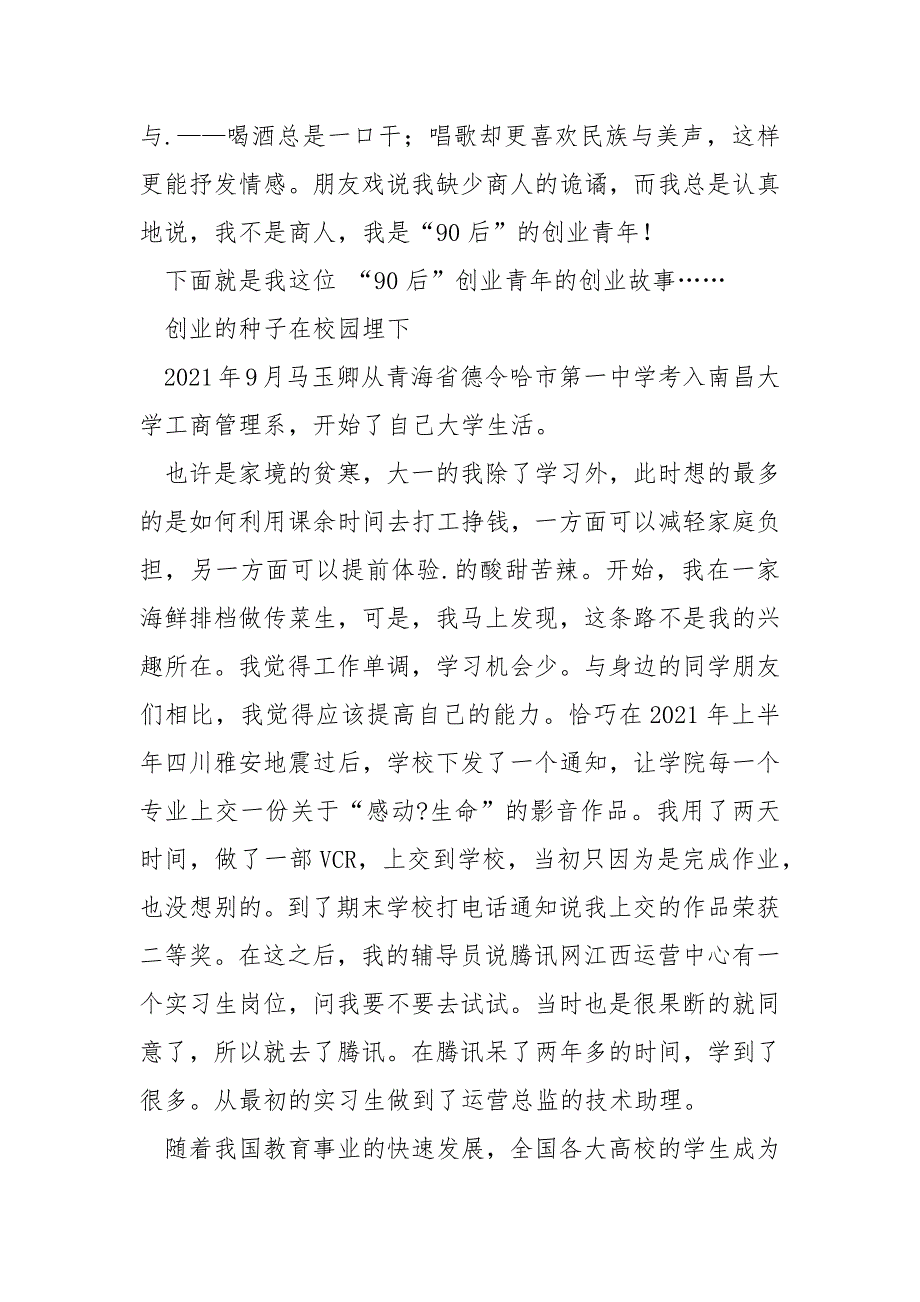 与.——喝酒总是一口干；唱歌却更喜欢民族与美声，这样
更能抒发情感。朋友戏说我缺少商人的诡谲，而我总是认真
地说，我不是商人，我是“90 后”的创业青年！
下面就是我这位 “90 后”创业青年的创业故事……
创业的种子在校园埋下
2021 年 9 月马玉卿从青海省德令哈市第一中学考入南昌大
学工商管理系，开始了自己大学生活。
也许是家境的贫寒，大一的我除了学习外，此时想的最多
的是如何利用课余时间去打工挣钱，一方面可以减轻家庭负
担，另一方面可以提前体验.的酸甜苦辣。开始，我在一家
海鲜排档做传菜生，可是，我马上发现，这条路不是我的兴
趣所在。我觉得工作单调，学习机会少。与身边的同学朋友
们相比，我觉得应该提高自己的能力。恰巧在 2021 年上半
年四川雅安地震过后，学校下发了一个通知，让学院每一个
专业上交一份关于“感动?生命”的影音作品。我用了两天
时间，做了一部 VCR，上交到学校，当初只因为是完成作业，
也没想别的。到了期末学校打电话通知说我上交的作品荣获
二等奖。在这之后，我的辅导员说腾讯网江西运营中心有一
个实习生岗位，问我要不要去试试。当时也是很果断的就同
意了，所以就去了腾讯。在腾讯呆了两年多的时间，学到了
很多。从最初的实习生做到了运营总监的技术助理。
随着我国教育事业的快速发展，全国各大高校的学生成为